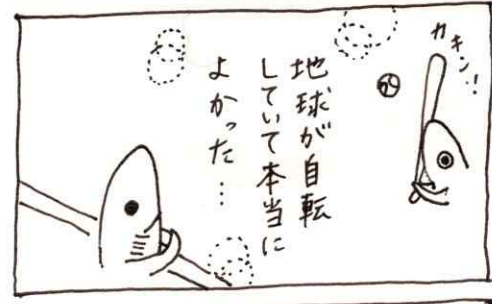 カキン!!
地球が自転
していて本当に
よかった…